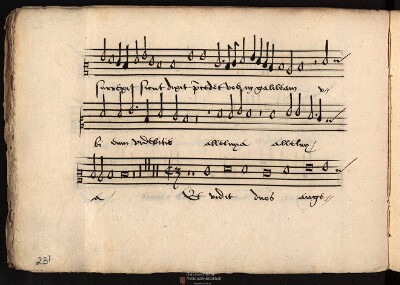 surrexit sicut dixit precedet vobis in galileam v
bi eum videbitis alleluya allelux
a Et vidit duos ange
231